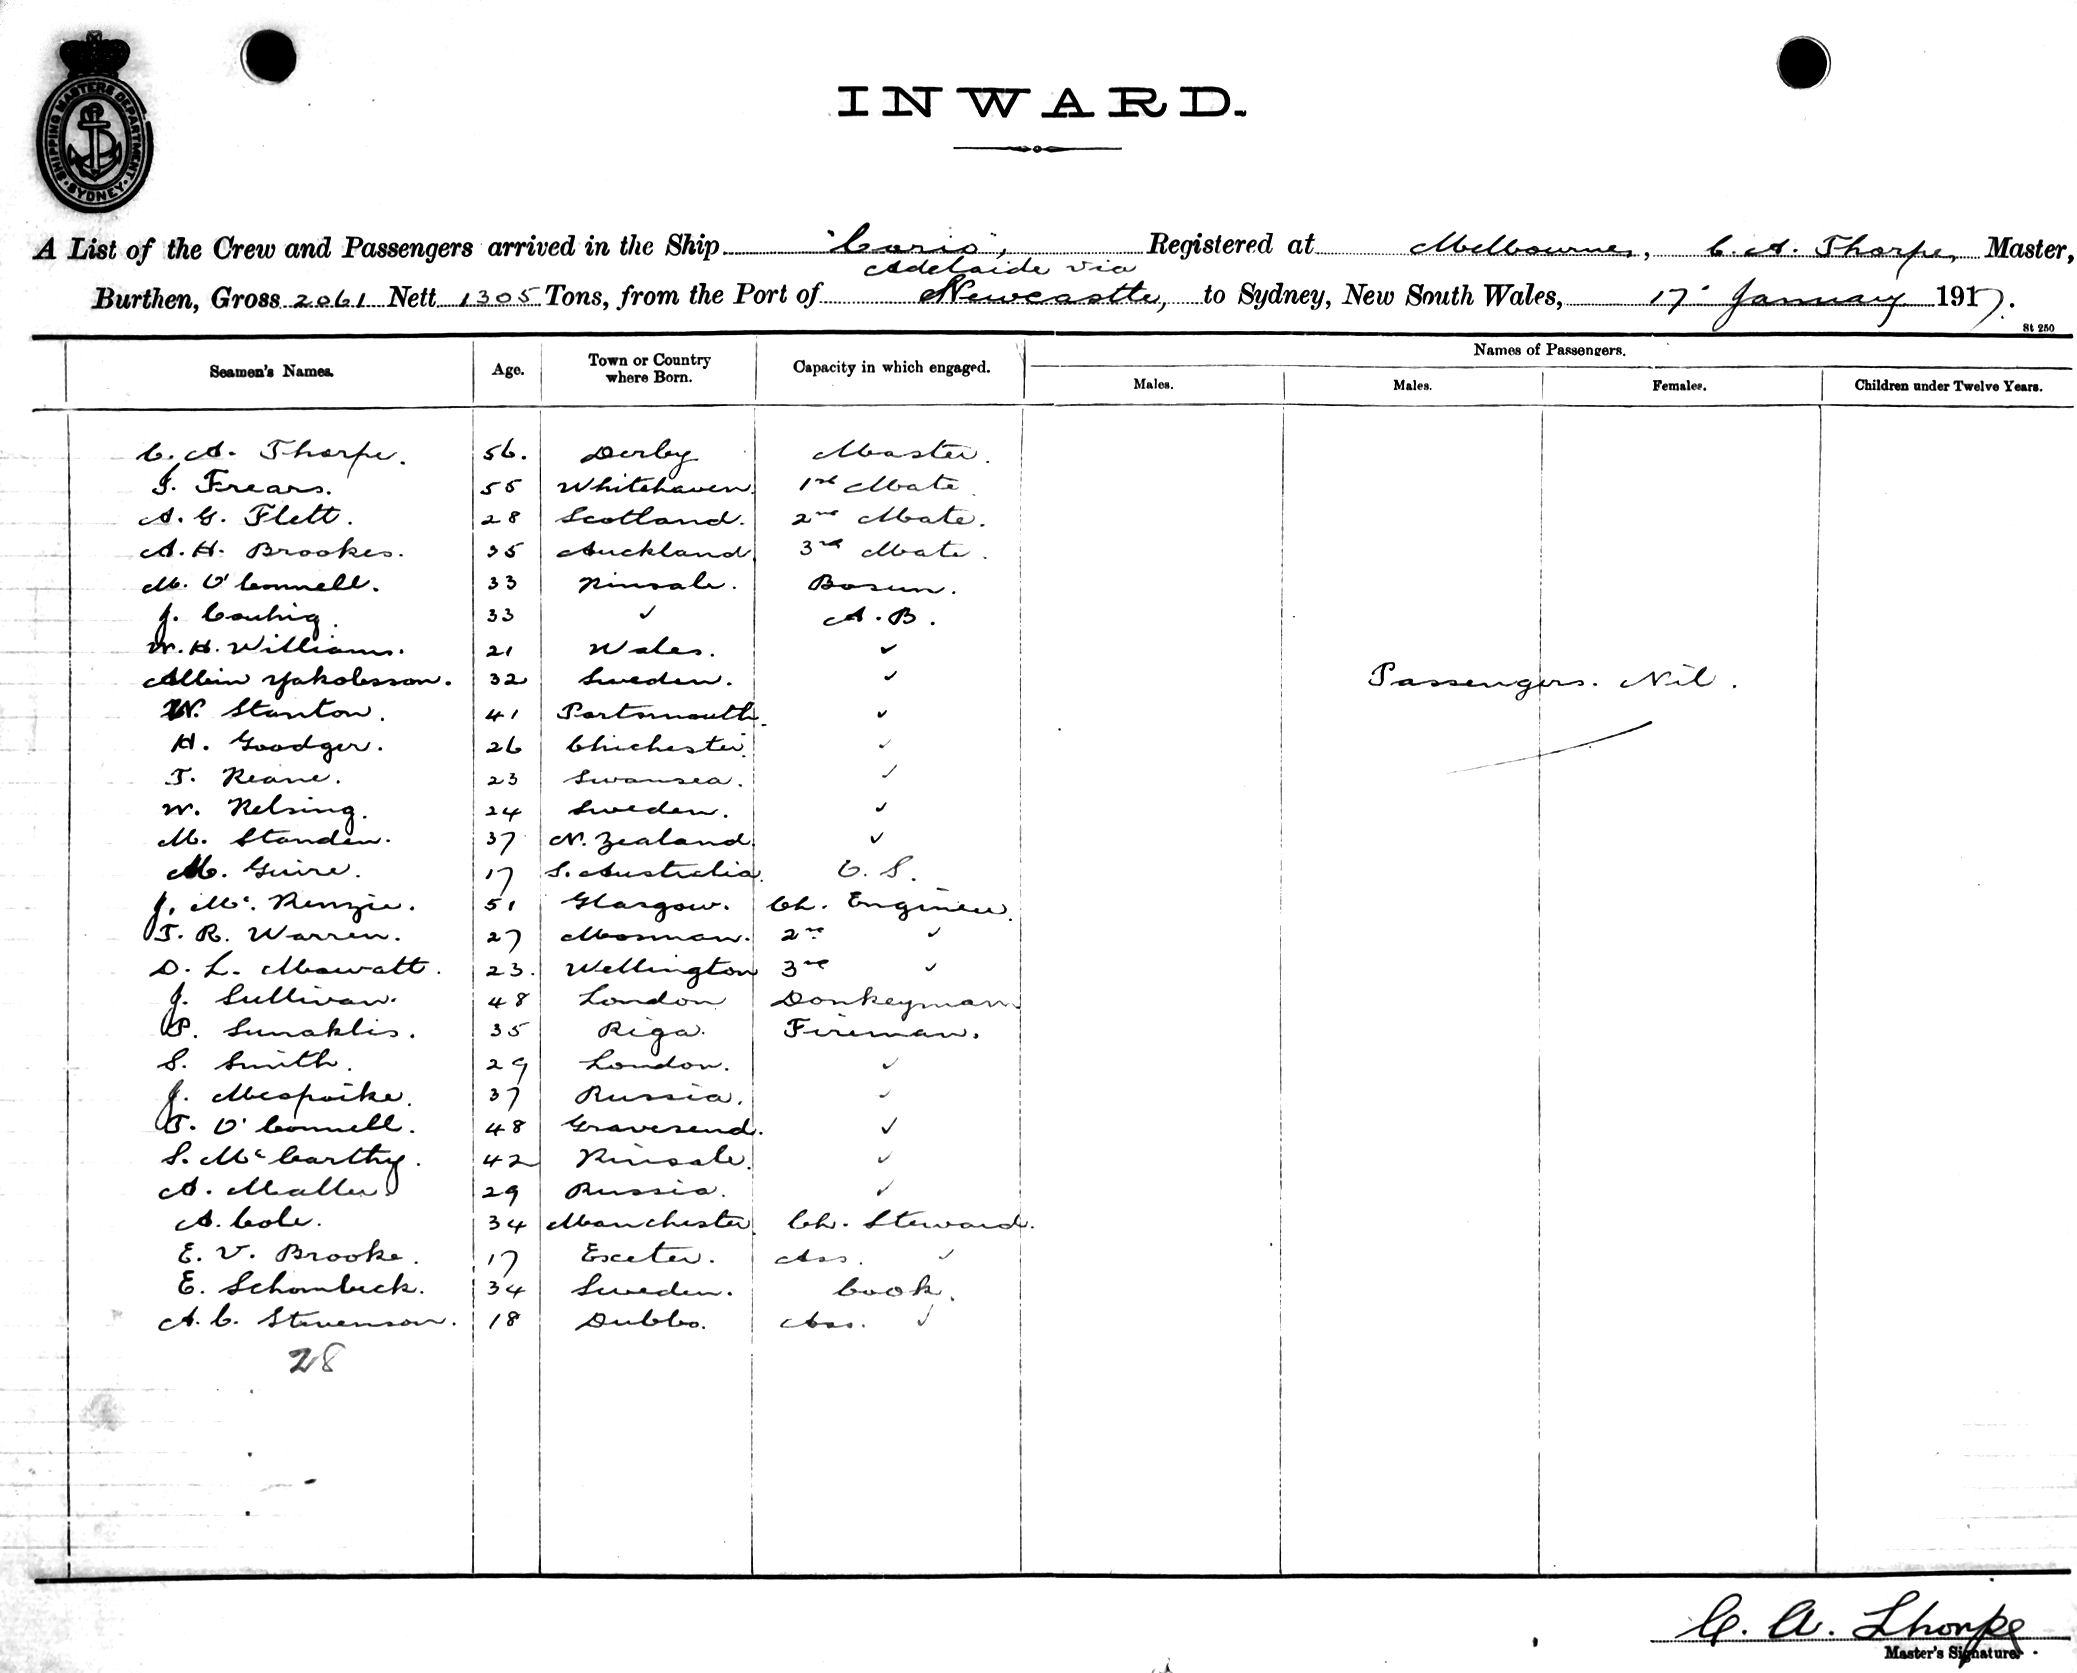 SHIPPING MASTERS DEPARTMENT
SYDNEY
INWARD.
A List of the Crew and Passengers arrived in the Ship "Corio", Registered at Melbourne, C. A. Thorpe, Master,
Adelaide via
Burthen, Gross 2061 Nett 1305 Tons, from the Port of Newcastle, to Sydney, New South Wales, 17 January 1917.
St 250
Seamen's Names. Age. Town or Country where Born. Capacity in which engaged. Names of Passengers.
Males. Males. Females. Children under Twelve Years.
C. A. Thorpe. 56. Derby Master.
J. Frears. 55 Whitehaven. 1st Mate
A. G. Flett. 28 Scotland. 2nd Mate.
A. H. Brookes. 35 Auckland 3rd Mate.
M. O'Connell. 33 Kinsale. Bosun.
J. Couhig. 33 ✓ A.B.
W. H. Williams. 21 Wales. ✓
Albin Yakobsson. 32 Sweden. ✓
Passengers. Nil.
W. Stanton. 41 Portsmouth. ✓
H. Goodger. 26 Chichester. ✓
T. Keane. 23 Swansea. ✓
W. Kelsing. 24 Sweden. ✓
M. Standen. 37 N. Zealand. ✓
M. Guire. 17 S. Australia. O. S.
J. McKenzie. 51 Glasgow. Ch. Engineer.
T. R. Warren. 27 Mosman. 2nd ✓
D. L. Mowatt. 23. Wellington 3rd ✓
J. Sullivan. 48 London Donkeyman
P. Sunaklis. 35 Riga. Fireman.
S. Smith. 29 London. ✓
J. Mespoike. 37 Russia. ✓
T. O'Connell. 48 Gravesend. ✓
S. McCarthy. 42 Kinsale. ✓
A. Maller 29 Russia. ✓
A. Cole. 34 Manchester. Ch. Steward.
E. V. Brooke. 17 Exeter. Ass. ✓
E. Schombeck. 34 Sweden. Cook.
A. C. Stevenson. 18 Dubbo. Ass. ✓
28
C. A. Thorpe
Master's Signature.